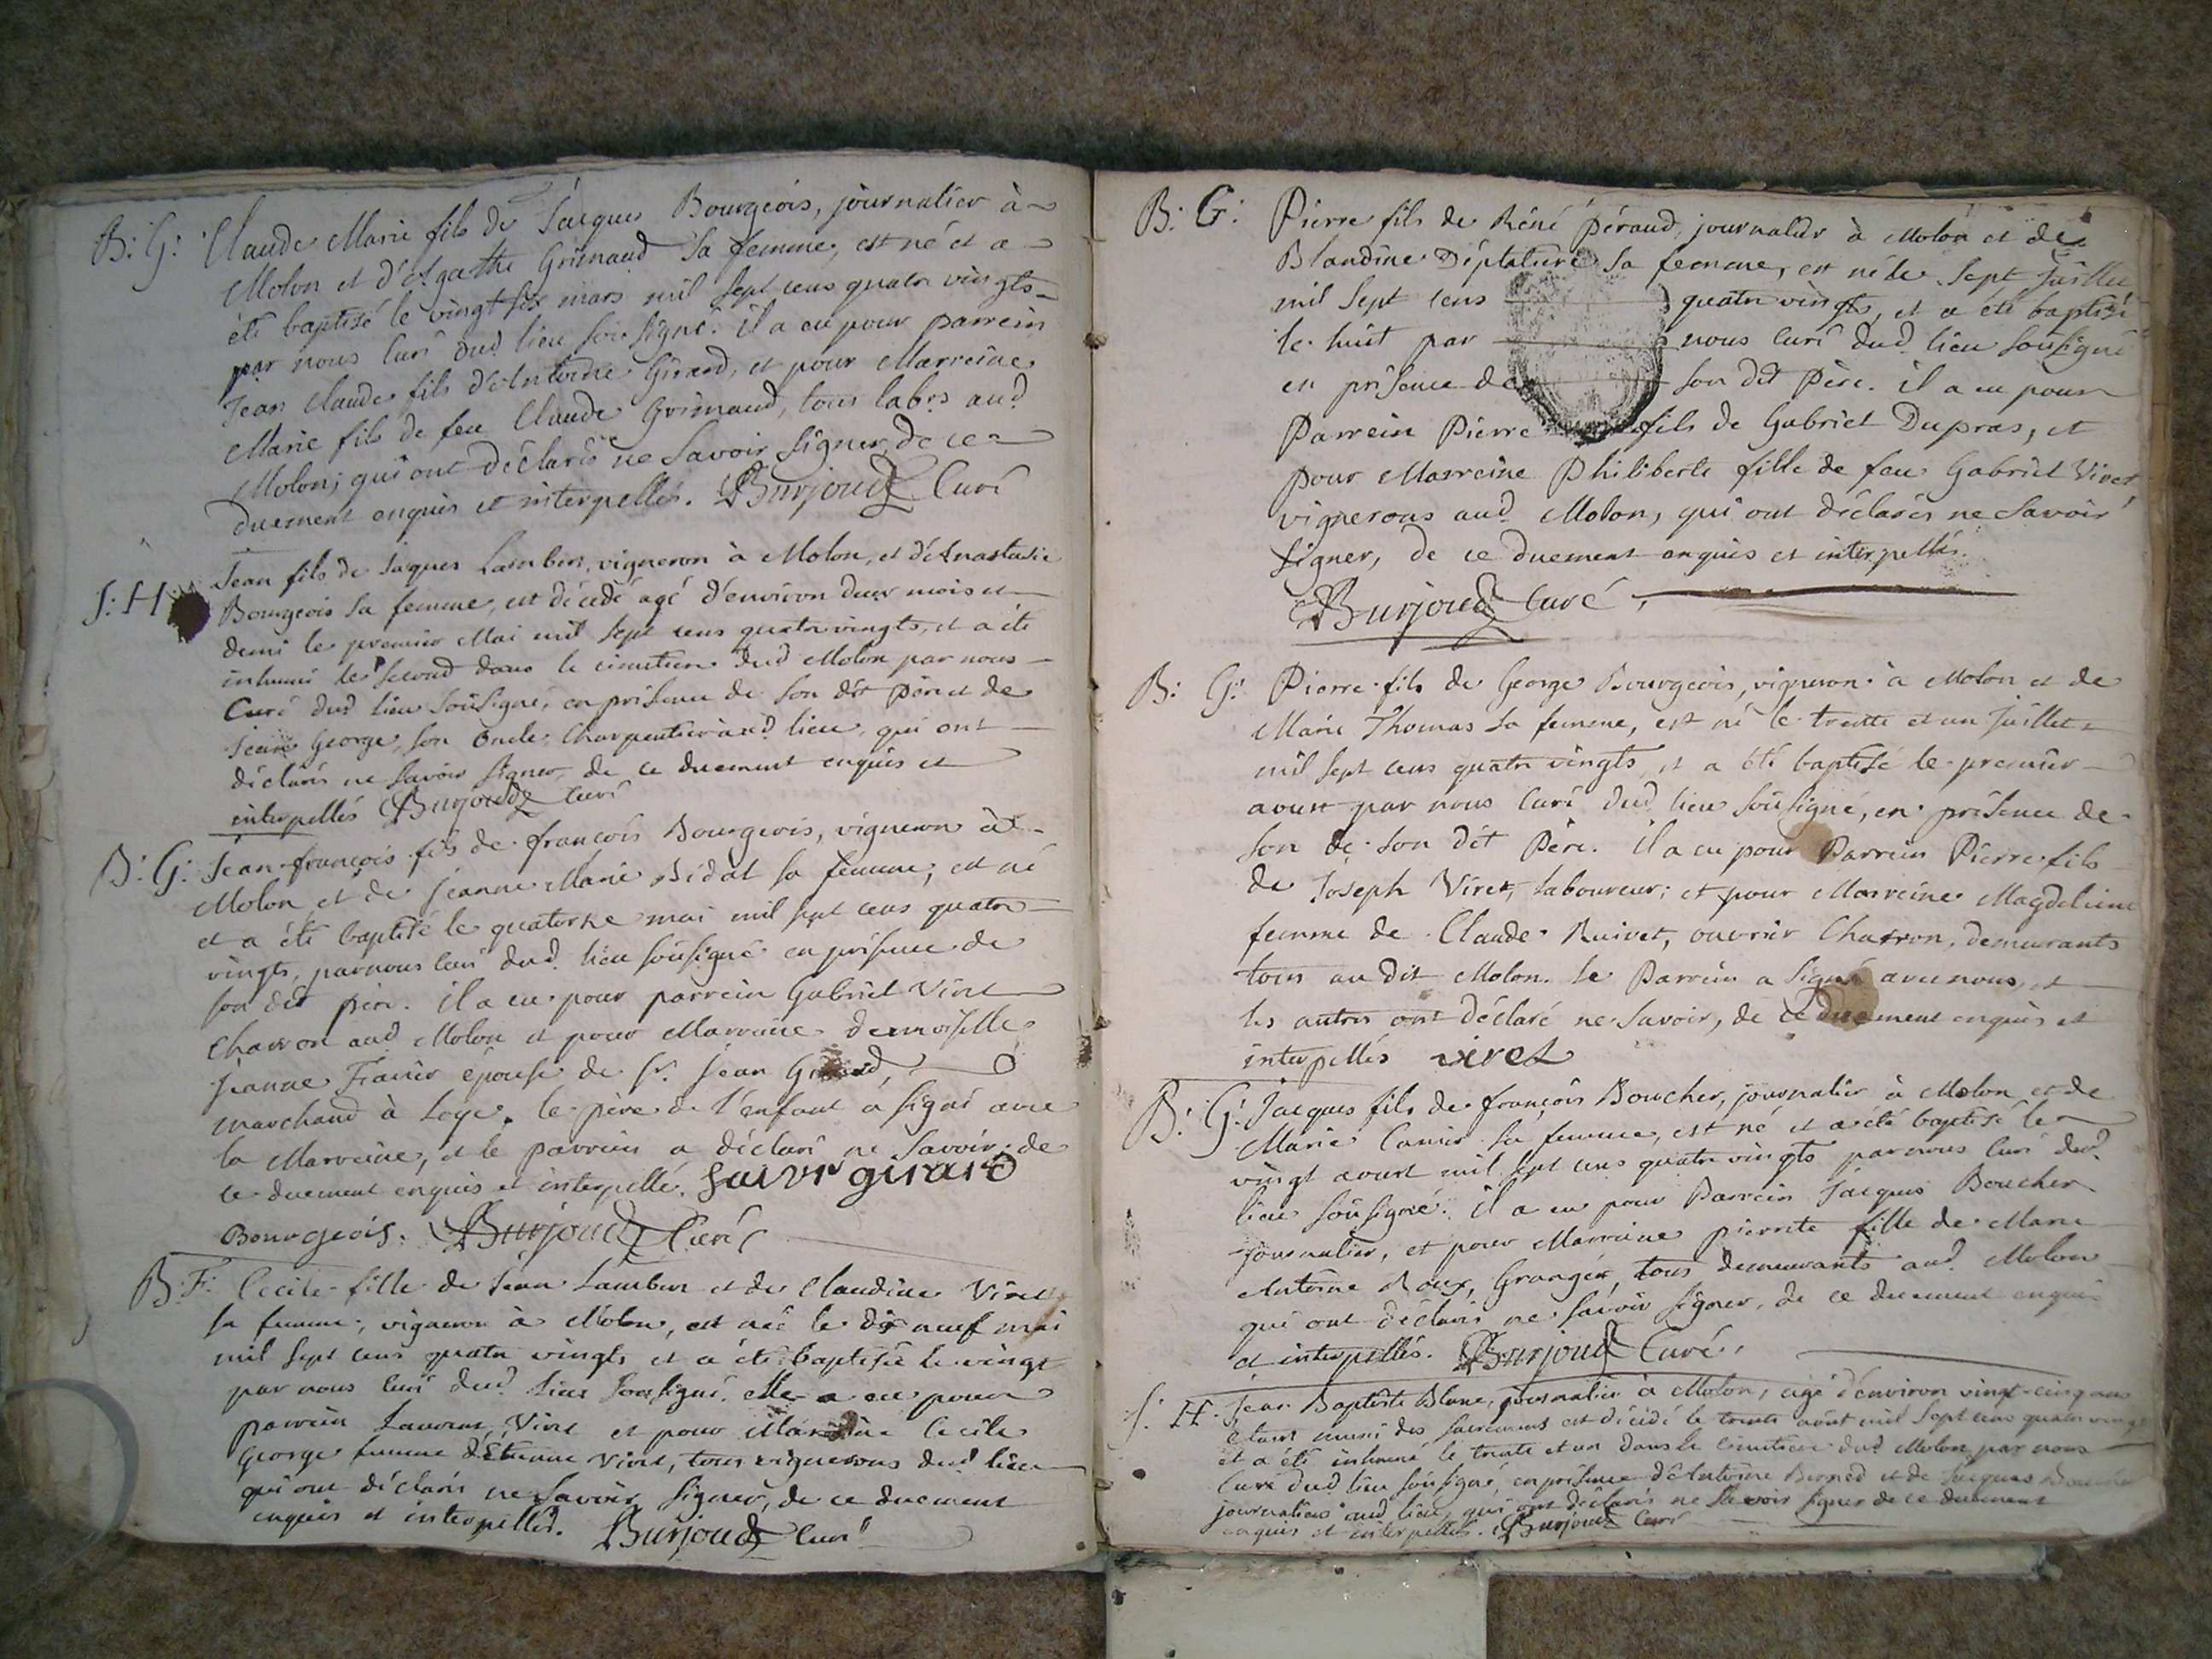 B: G: Claude Marie fils de Jacques Bourgeois, journalier à
Molon et d'Agathe Grimaud sa femme, est né et a
été baptisé le vingt six mars mil sept cens quatre vingts
par nous Curé dud. lieu sousigné. il a eu pour parrein
Jean Claude fils d'Antoine Girard, et pour Marreine
Marie fils de feu Claude Grimaud, tous labrs aud.
Molon, qui ont déclarés ne savoir signer, de ce
duement enquis et interpellés. Burjoud Curé
S: H: Jean fils de Jaques Lambert, vigneron à Molon, et d'Anastasie
Bourgeois sa femme, est décédé agé d'environ deux mois et
demi le premier Mai mil sept cens quatre vingts, et a été
inhumé le second dans le cimetiere dud Molon par nous
Curé dud lieu sousigné, en présence de son dit Père et de
Jean George, son oncle, Charpentier aud. lieu, qui ont
déclarés ne savoir signer, de ce duement enquis et
interpellés Burjoud Curé
B: G: Jean-françois fils de françois Bourgeois, vigneron à
Molon et de Jeanne Marie Bidal sa femme, est né
et a été baptisé le quatorze mai mil sept cens quatre
vingts, par nous Curé dud. lieu sousigné en présence de
son dit père. il a eu pour parrein Gabriel Viret
Charron aud Molon et pour Marreine demoiselle
Jeanne épouse de Sr. Jean Girard,
marchand à Loye. le père de l'enfant a signé avec
la Marreine, et le parrein a déclaré ne savoir, de
ce duement enquis et interpellé. girard
Bourgeois. Burjoud Curé
B: F: Cecile fille de Jean Lambert et de Claudine Viret
sa femme, vigneron à Molon, est née le dix neuf mai
mil sept cens quatre vingts et a été baptisée le vingt
par nous Curé dud. lieu sousigné. elle a eu pour
parrein Laurent Viret et pour Marreine Cecile
George femme d'Etienne Viret, tous vignerons dud lieu
qui ont déclarés ne savoir signer, de ce duement
enquis et interpellés. Burjoud Curé
B: G: Pierre fils de Réné Péraud, journalier à Molon et de
Blandine Déplature sa femme, est né le sept Juillet
mil sept cens quatre vingts, et a été baptisé
le huit par nous Curé dud. lieu sousigné
en présence de son dit Père. il a eu pour
Parrein Pierre fils de Gabriel Dupras, et
pour Marreine Philiberte fille de feu Gabriel Viret
vignerons aud. Molon, qui ont déclarés ne savoir
signer, de ce duement enquis et interpellés.
Burjoud Curé
B: G: Pierre fils de George Bourgeois, vigneron à Molon et de
Marie Thomas sa femme, est né le trente et un Juillet
mil sept cens quatre vingts, et a été baptisé le premier
aoust par nous Curé dud. lieu sousigné, en présence de
son de son dit Père. il a eu pour Parrein Pierre fils
de Joseph Viret, laboureur; et pour Marreine Magdeleine
femme de Claude Ruivet, ouvrier Charron, demeurants
tous au dit Molon. le Parrein a signé avec nous, et
les autres ont déclaré ne savoir, de ce duement enquis et
interpellés viret
B: G: Jacques fils de françois Boucher, journalier à Molon et de
Marie Canier sa femme, est né et a été baptisé le
vingt aoust mil sept cens quatre vingts par nous Curé dud.
lieu sousigné. il a eu pour Parrein Jacques Boucher
journalier, et pour Marreine pierrette fille de Marc
Antoine Roux, Granger, tous demeurants aud. Molon
qui ont déclarés ne savoir signer, de ce duement enquis
et interpellés. Burjoud Curé.
S: H: Jean Baptiste Blanc, journalier à Molon, agé d'environ vingt-cinq ans
étant muni des sacremens est décédé le trente août mil sept cens quatre vingt
et a été inhumé le trente et un dans le cimetiere dud Molon par nous
Curé dud lieu sousigné, en présence d'Antoine et de Jacques Boucher
journaliers aud lieu, qui ont déclarés ne savoir signer de ce duement
enquis et interpellés. Burjoud Curé